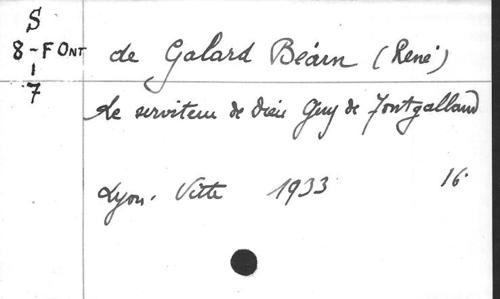 S
8 - FONT
1
7
de Galard Béarn (René)
Le serviteur de dieu Guy de Fontgalland
Lyon. Vitte 1933 16°